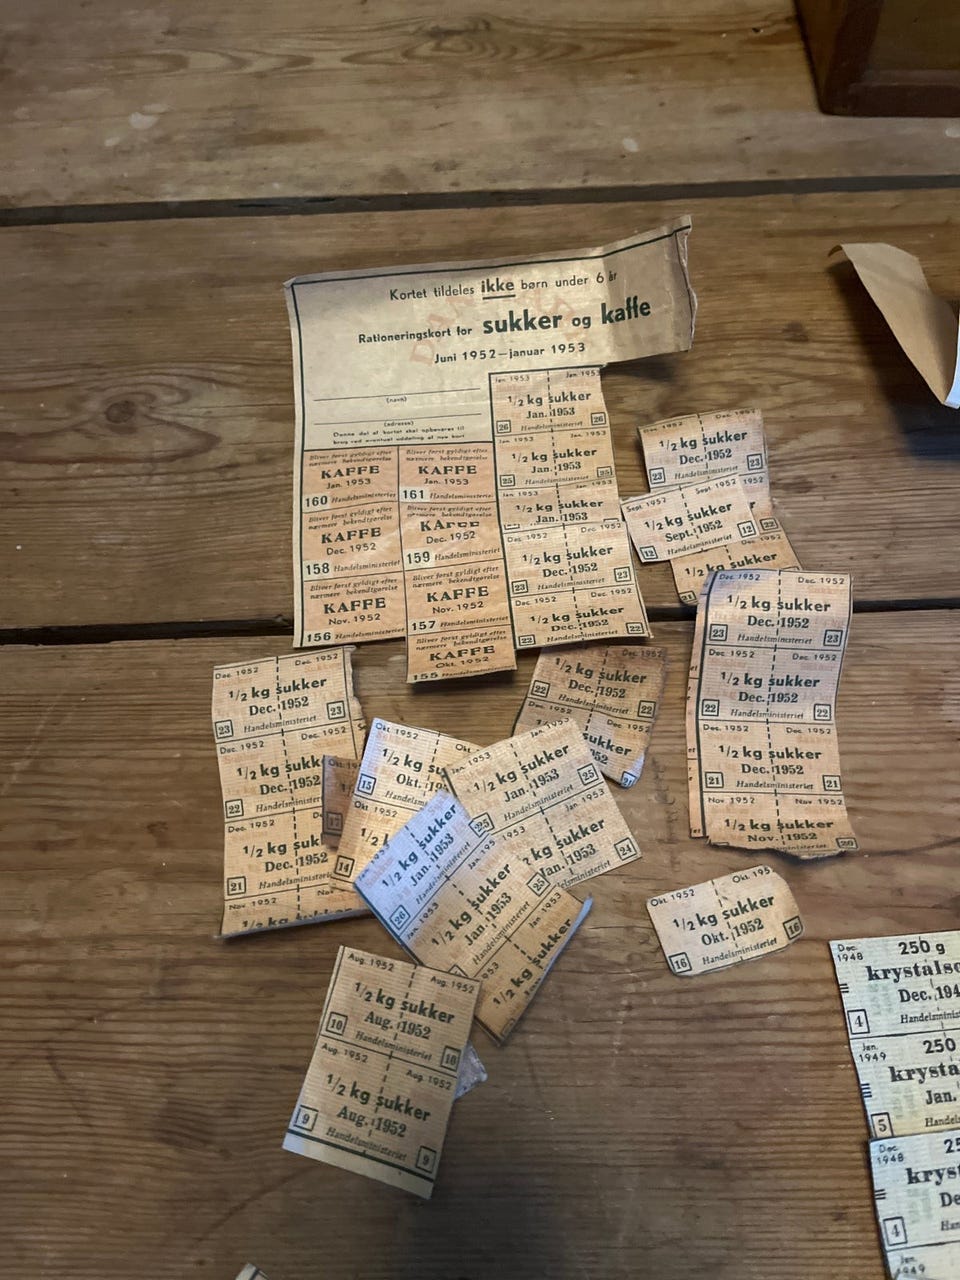 Kortet tildeles ikke børn under 6 år
Rationeringskort for sukker og kaffe
Juni 1952—januar 1953
(navn)
(adresse)
Denne del af kortet skal opbevares til
brug ved eventuel uddeling af nye kort
Bliver først gyldigt efter
nærmere bekendtgørelse
KAFFE
Jan. 1953
160 Handelsministeriet
Bliver først gyldigt efter
nærmere bekendtgørelse
KAFFE
Jan. 1953
161 Handelsministeriet
Bliver først gyldigt efter
nærmere bekendtgørelse
KAFFE
Dec. 1952
158 Handelsministeriet
Bliver først gyldigt efter
nærmere bekendtgørelse
KAFFE
Dec. 1952
159 Handelsministeriet
Bliver først gyldigt efter
nærmere bekendtgørelse
KAFFE
Nov. 1952
156 Handelsministeriet
Bliver først gyldigt efter
nærmere bekendtgørelse
KAFFE
Nov. 1952
157 Handelsministeriet
Bliver først gyldigt efter
nærmere bekendtgørelse
KAFFE
Okt. 1952
155 Handelsministeriet
Jan. 1953 Jan. 1953
1/2 kg sukker
Jan. 1953
26 Handelsministeriet 26
Jan. 1953 Jan. 1953
1/2 kg sukker
Jan. 1953
25 Handelsministeriet 25
Jan. 1953 Jan. 1953
1/2 kg sukker
Jan. 1953
Dec. 1952 Dec. 1952
1/2 kg sukker
Dec. 1952
23 Handelsministeriet 23
Dec. 1952 Dec. 1952
1/2 kg sukker
Dec. 1952
22 Handelsministeriet 22
Dec. 1952 Dec. 1952
1/2 kg sukker
Dec. 1952
23 Handelsministeriet 23
Sept. 1952 Sept. 1952
1/2 kg sukker
Sept. 1952
12 Handelsministeriet 12
22
Dec. 1952
1/2 kg sukker
21
Dec. 1952 Dec. 1952
1/2 kg sukker
Dec. 1952
23 Handelsministeriet 23
Dec. 1952 Dec. 1952
1/2 kg sukker
Dec. 1952
22 Handelsministeriet 22
Dec. 1952 Dec. 1952
1/2 kg sukker
Dec. 1952
21 Handelsministeriet 21
Nov. 1952 Nov. 1952
1/2 kg sukker
Nov. 1952
20 Handelsministeriet 20
Dec. 1952 Dec. 1952
1/2 kg sukker
Dec. 1952
23 Handelsministeriet 23
Dec. 1952
1/2 kg sukk
Dec. 1952
22 Handelsministeriet
Dec. 1952
1/2 kg suk
Dec. 1952
21 Handelsministeriet
Nov. 1952
1/2 kg
Dec. 1952
1/2 kg sukker
Dec. 1952
22 Handelsministeriet 22
Dec. 1952
sukker
1952
Okt. 1952 Okt.
1/2 kg su
Okt. 19
15 Handelsmin
Okt. 1952
1/2
14
Jan. 1953
1/2 kg sukker
Jan. 1953
Handelsministeriet 25
Jan. 1953
kg sukker
Jan. 1953
Handelsministeriet 24
1/2 kg sukker
Jan. 1953
26 Handelsministeriet
25
Jan. 1953 Jan. 195
1/2 kg sukker
Jan. 1953
Handelsministeriet 25
Jan. 1953
1/2 kg sukker
Okt. 1952 Okt. 195
1/2 kg sukker
Okt. 1952
16 Handelsministeriet 16
Aug. 1952 Aug. 1952
1/2 kg sukker
Aug. 1952
10 Handelsministeriet 10
Aug. 1952 Aug. 1952
1/2 kg sukker
Aug. 1952
9 Handelsministeriet 9
Dec.
1948
250 g
krystalsc
Dec. 194
4 Handelsminis
Jan.
1949
250
krysta
Jan.
5 Handels
Dec.
1948
25
krys
De
4 Han
Jan.
1949